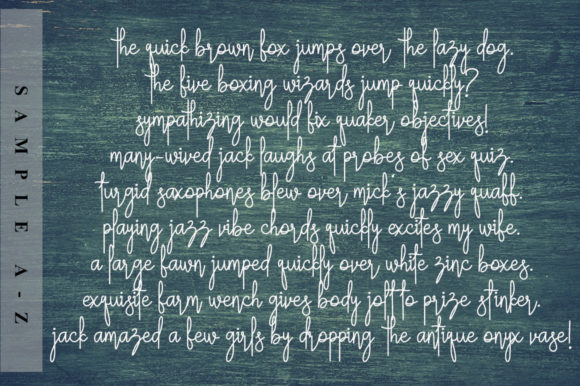 SAMPLE A-Z
the quick brown fox jumps over the lazy dog.
the five boxing wizards jump quickly?
sympathizing would fix quaker objectives!
many-wived jack laughs at probes of sex quiz.
turgid saxophones blew over mick's jazzy quaff.
playing jazz vibe chords quickly excites my wife.
a large fawn jumped quickly over white zinc boxes.
exquisite farm wench gives body jolt to prize stinker.
jack amazed a few girls by dropping the antique onyx vase!